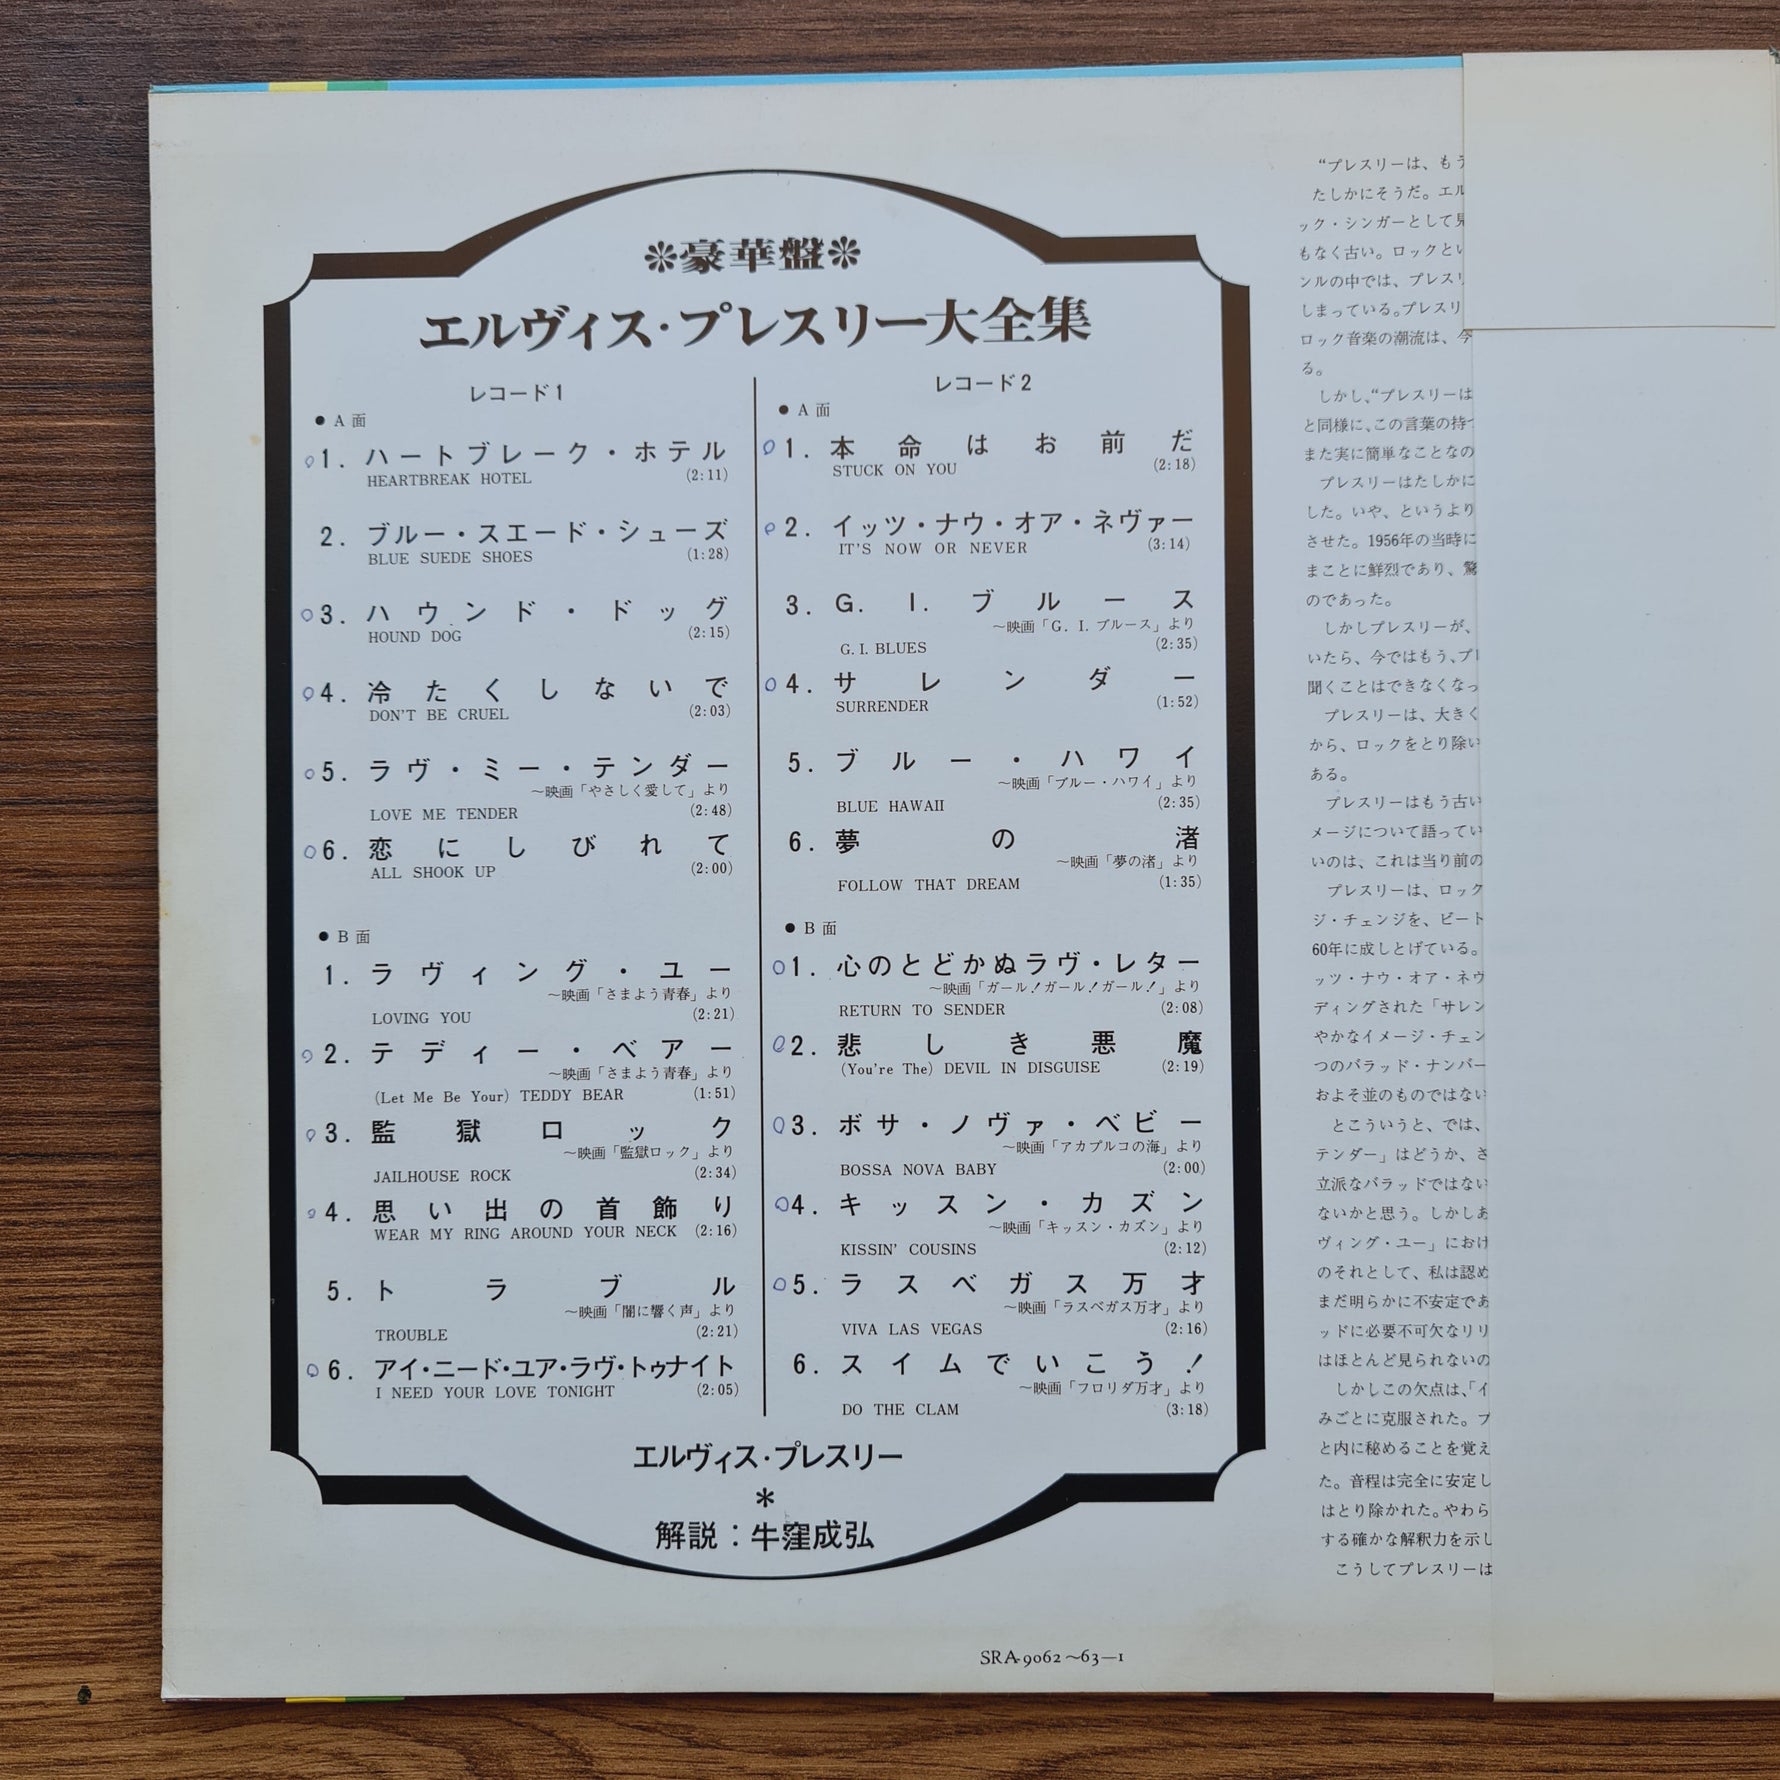 ❊豪華盤❊
エルヴィス・プレスリー大全集
レコード1
● A 面
1. ハートブレーク・ホテル
HEARTBREAK HOTEL (2:11)
2. ブルー・スエード・シューズ
BLUE SUEDE SHOES (1:28)
3. ハウンド・ドッグ
HOUND DOG (2:15)
4. 冷たくしないで
DON'T BE CRUEL (2:03)
5. ラヴ・ミー・テンダー
〜映画「やさしく愛して」より
LOVE ME TENDER (2:48)
6. 恋にしびれて
ALL SHOOK UP (2:00)
● B 面
1. ラヴィング・ユー
〜映画「さまよう青春」より
LOVING YOU (2:21)
2. テディー・ベアー
〜映画「さまよう青春」より
(Let Me Be Your) TEDDY BEAR (1:51)
3. 監獄ロック
〜映画「監獄ロック」より
JAILHOUSE ROCK (2:34)
4. 思い出の首飾り
WEAR MY RING AROUND YOUR NECK (2:16)
5. トラブル
〜映画「闇に響く声」より
TROUBLE (2:21)
6. アイ・ニード・ユア・ラヴ・トゥナイト
I NEED YOUR LOVE TONIGHT (2:05)
レコード2
● A 面
1. 本命はお前だ
STUCK ON YOU (2:18)
2. イッツ・ナウ・オア・ネヴァー
IT'S NOW OR NEVER (3:14)
3. G. I. ブルース
〜映画「G. I. ブルース」より
G. I. BLUES (2:35)
4. サレンダー
SURRENDER (1:52)
5. ブルー・ハワイ
〜映画「ブルー・ハワイ」より
BLUE HAWAII (2:35)
6. 夢の渚
〜映画「夢の渚」より
FOLLOW THAT DREAM (1:35)
● B 面
1. 心のとどかぬラヴ・レター
〜映画「ガール！ガール！ガール！」より
RETURN TO SENDER (2:08)
2. 悲しき悪魔
(You're The) DEVIL IN DISGUISE (2:19)
3. ボサ・ノヴァ・ベビー
〜映画「アカプルコの海」より
BOSSA NOVA BABY (2:00)
4. キッスン・カズン
〜映画「キッスン・カズン」より
KISSIN' COUSINS (2:12)
5. ラスベガス万才
〜映画「ラスベガス万才」より
VIVA LAS VEGAS (2:16)
6. スイムでいこう！
〜映画「フロリダ万才」より
DO THE CLAM (3:18)
エルヴィス・プレスリー
＊
解説：牛窪成弘
SRA-9062〜63—1
“プレスリーは、もう
たしかにそうだ。エル
ック・シンガーとして見
もなく古い。ロックとい
ンルの中では、プレスリ
しまっている。プレスリ
ロック音楽の潮流は、今
る。
しかし、“プレスリーは
と同様に、この言葉の持つ
また実に簡単なことなの
プレスリーはたしかに
した。いや、というより
させた。1956年の当時に
まことに鮮烈であり、驚
のであった。
しかしプレスリーが、
いたら、今ではもう、プレ
聞くことはできなくなっ
プレスリーは、大きく
から、ロックをとり除い
ある。
プレスリーはもう古い
メージについて語ってい
いのは、これは当り前の
プレスリーは、ロック
ジ・チェンジを、ビート
60年に成しとげている。
ッツ・ナウ・オア・ネヴ
ディングされた「サレン
やかなイメージ・チェン
つのバラッド・ナンバー
およそ並のものではない
とこういうと、では、
テンダー」はどうか、さ
立派なバラッドではない
ないかと思う。しかしあ
ヴィング・ユー」におけ
のそれとして、私は認め
まだ明らかに不安定であ
ッドに必要不可欠なリリ
はほとんど見られないの
しかしこの欠点は、「イ
みごとに克服された。プ
と内に秘めることを覚え
た。音程は完全に安定し
はとり除かれた。やわら
する確かな解釈力を示し
こうしてプレスリーは